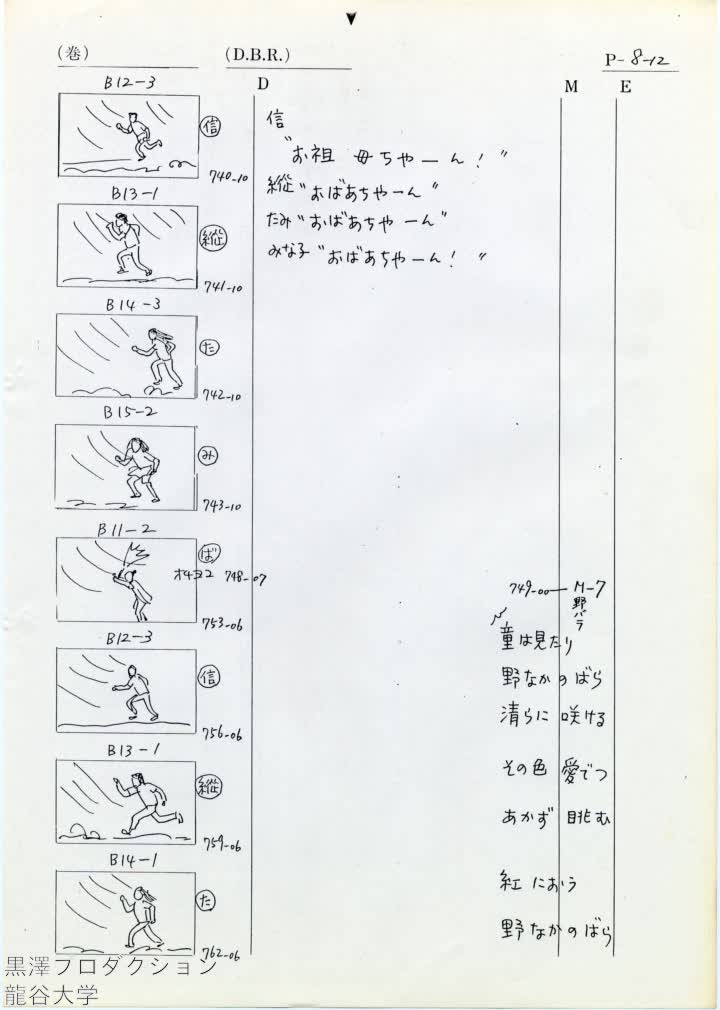 (巻)
(D.B.R.)
P- 8-12
D
M
E
B12-3
信
740-10
信
"お祖母ちゃーん!"
B13-1
縦
741-10
縦"おばあちゃーん"
たみ"おばあちゃーん"
みな子"おばあちゃーん!"
B14-3
た
742-10
B15-2
み
743-10
B11-2
ば
オチョコ 748-07
753-06
749-00 M-7
野バラ
童は見たり
野なかのばら
清らに咲ける
その色愛でつ
あかず眺む
紅におう
野なかのばら
B12-3
信
756-06
B13-1
縦
759-06
B14-1
た
762-06
黒澤プロダクション
龍谷大学